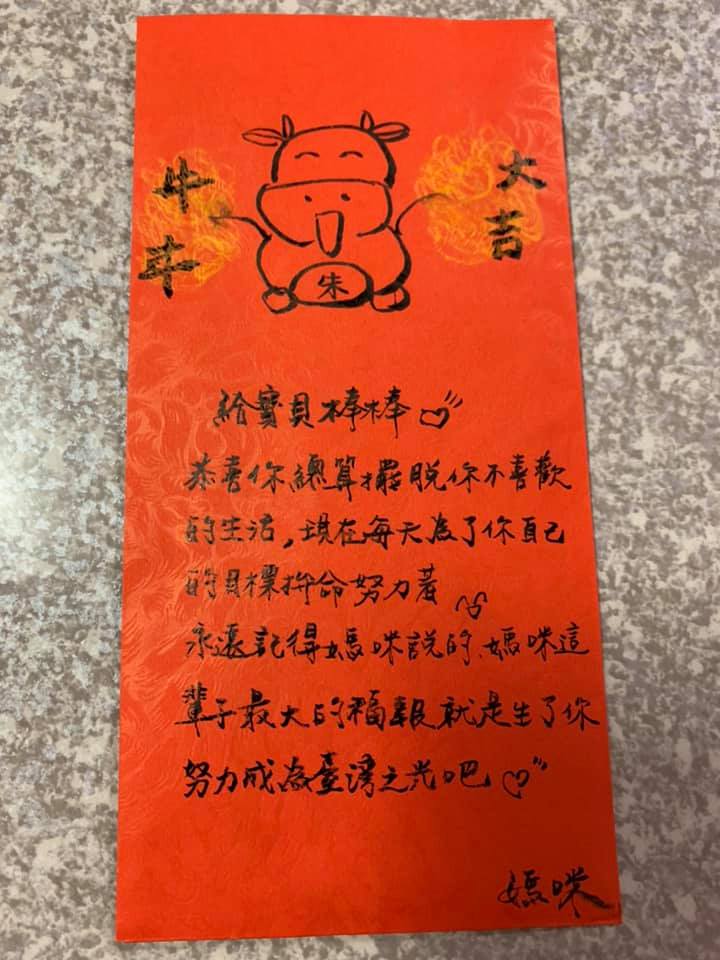 牛
年
大
吉
朱
給寶貝棒棒
恭喜你總算擺脫你不喜歡
的生活,現在每天為了你自己
的目標拚命努力著
永遠記得媽咪說的、媽咪這
輩子最大的福報就是生了你
努力成為臺灣之光吧
媽咪